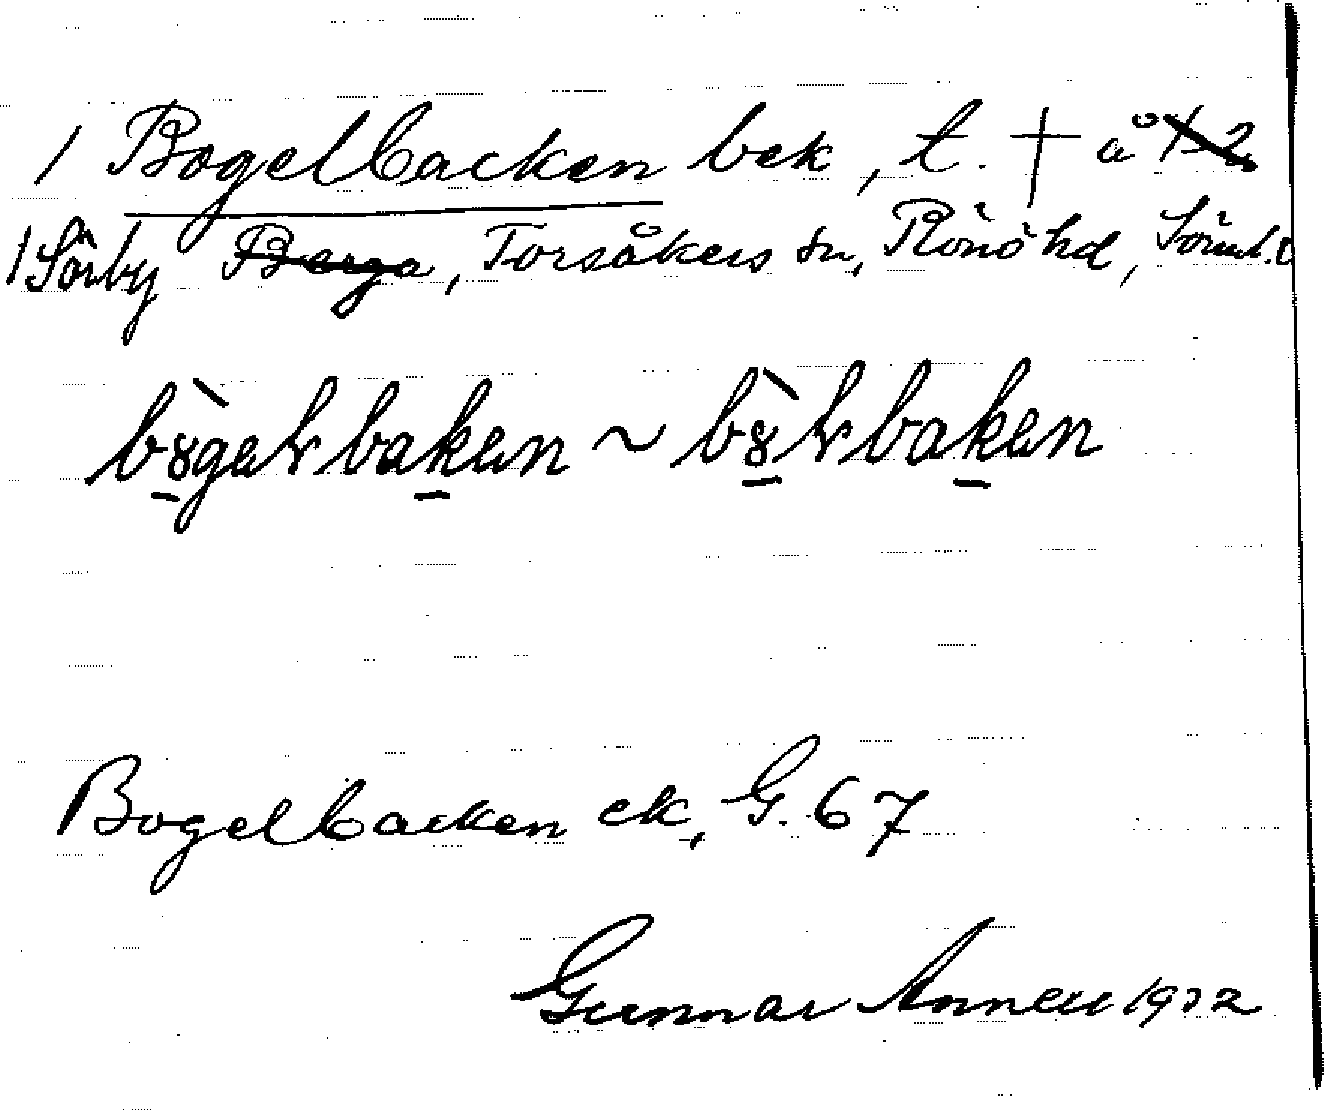 1 Bogelbacken bek, t. † å 1-2
1 Sörby Berga, Torsåkers sn, Rönö hd, Sörml.
Bogelbacken ek, G. 67
Gunnar 1932